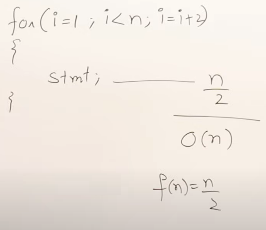 for(i=1 ; i<n; i=i+2)
{
stmt; ——— n/2
}
O(n)
f(n)=n/2